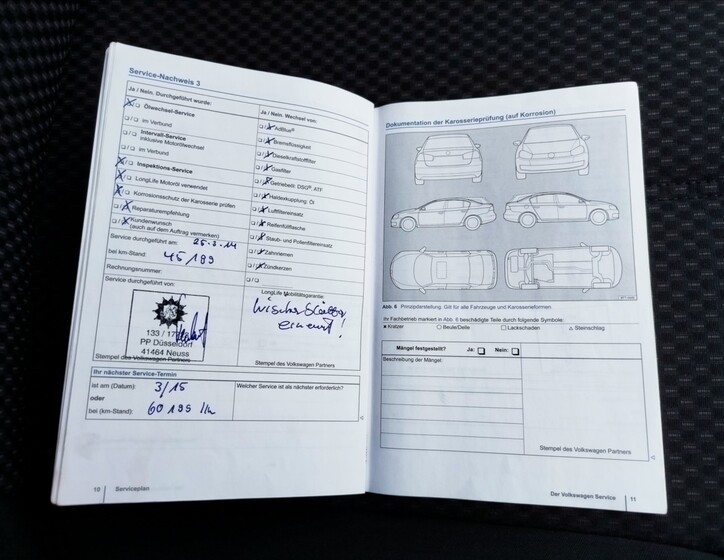 Service-Nachweis 3
Ja / Nein. Durchgeführt wurde:
Ölwechsel-Service
im Verbund
Intervall-Service
inklusive Motorölwechsel
im Verbund
Inspektions-Service
LongLife Motoröl verwendet
Korrosionsschutz der Karosserie prüfen
Reparaturempfehlung
Kundenwunsch
(auch auf dem Auftrag vermerken)
Service durchgeführt am: 25.3.14
bei km-Stand: 45 189
Rechnungsnummer:
Service durchgeführt von:
133 /
PP Düsseldorf
41464 Neuss
Stempel des Volkswagen Partners
Ja / Nein. Wechsel von:
AdBlue®
Bremsflüssigkeit
Dieselkraftstofffilter
Gasfilter
Getriebeöl: DSG®, ATF
Haldexkupplung: Öl
Luftfiltereinsatz
Reifenfüllflasche
Staub- und Pollenfiltereinsatz
Zahnriemen
Zündkerzen
LongLife Mobilitätsgarantie:
erneuert!
Stempel des Volkswagen Partners
Ihr nächster Service-Termin
ist am (Datum): 3/15
oder
bei (km-Stand): 60 199 km
Welcher Service ist als nächster erforderlich?
10 Serviceplan
Dokumentation der Karosserieprüfung (auf Korrosion)
Abb. 6 Prinzipdarstellung. Gilt für alle Fahrzeuge und Karosserieformen.
Ihr Fachbetrieb markiert in Abb. 6 beschädigte Teile durch folgende Symbole:
× Kratzer ○ Beule/Delle □ Lackschaden △ Steinschlag
Mängel festgestellt? Ja: Nein:
Beschreibung der Mängel:
Stempel des Volkswagen Partners
Der Volkswagen Service 11